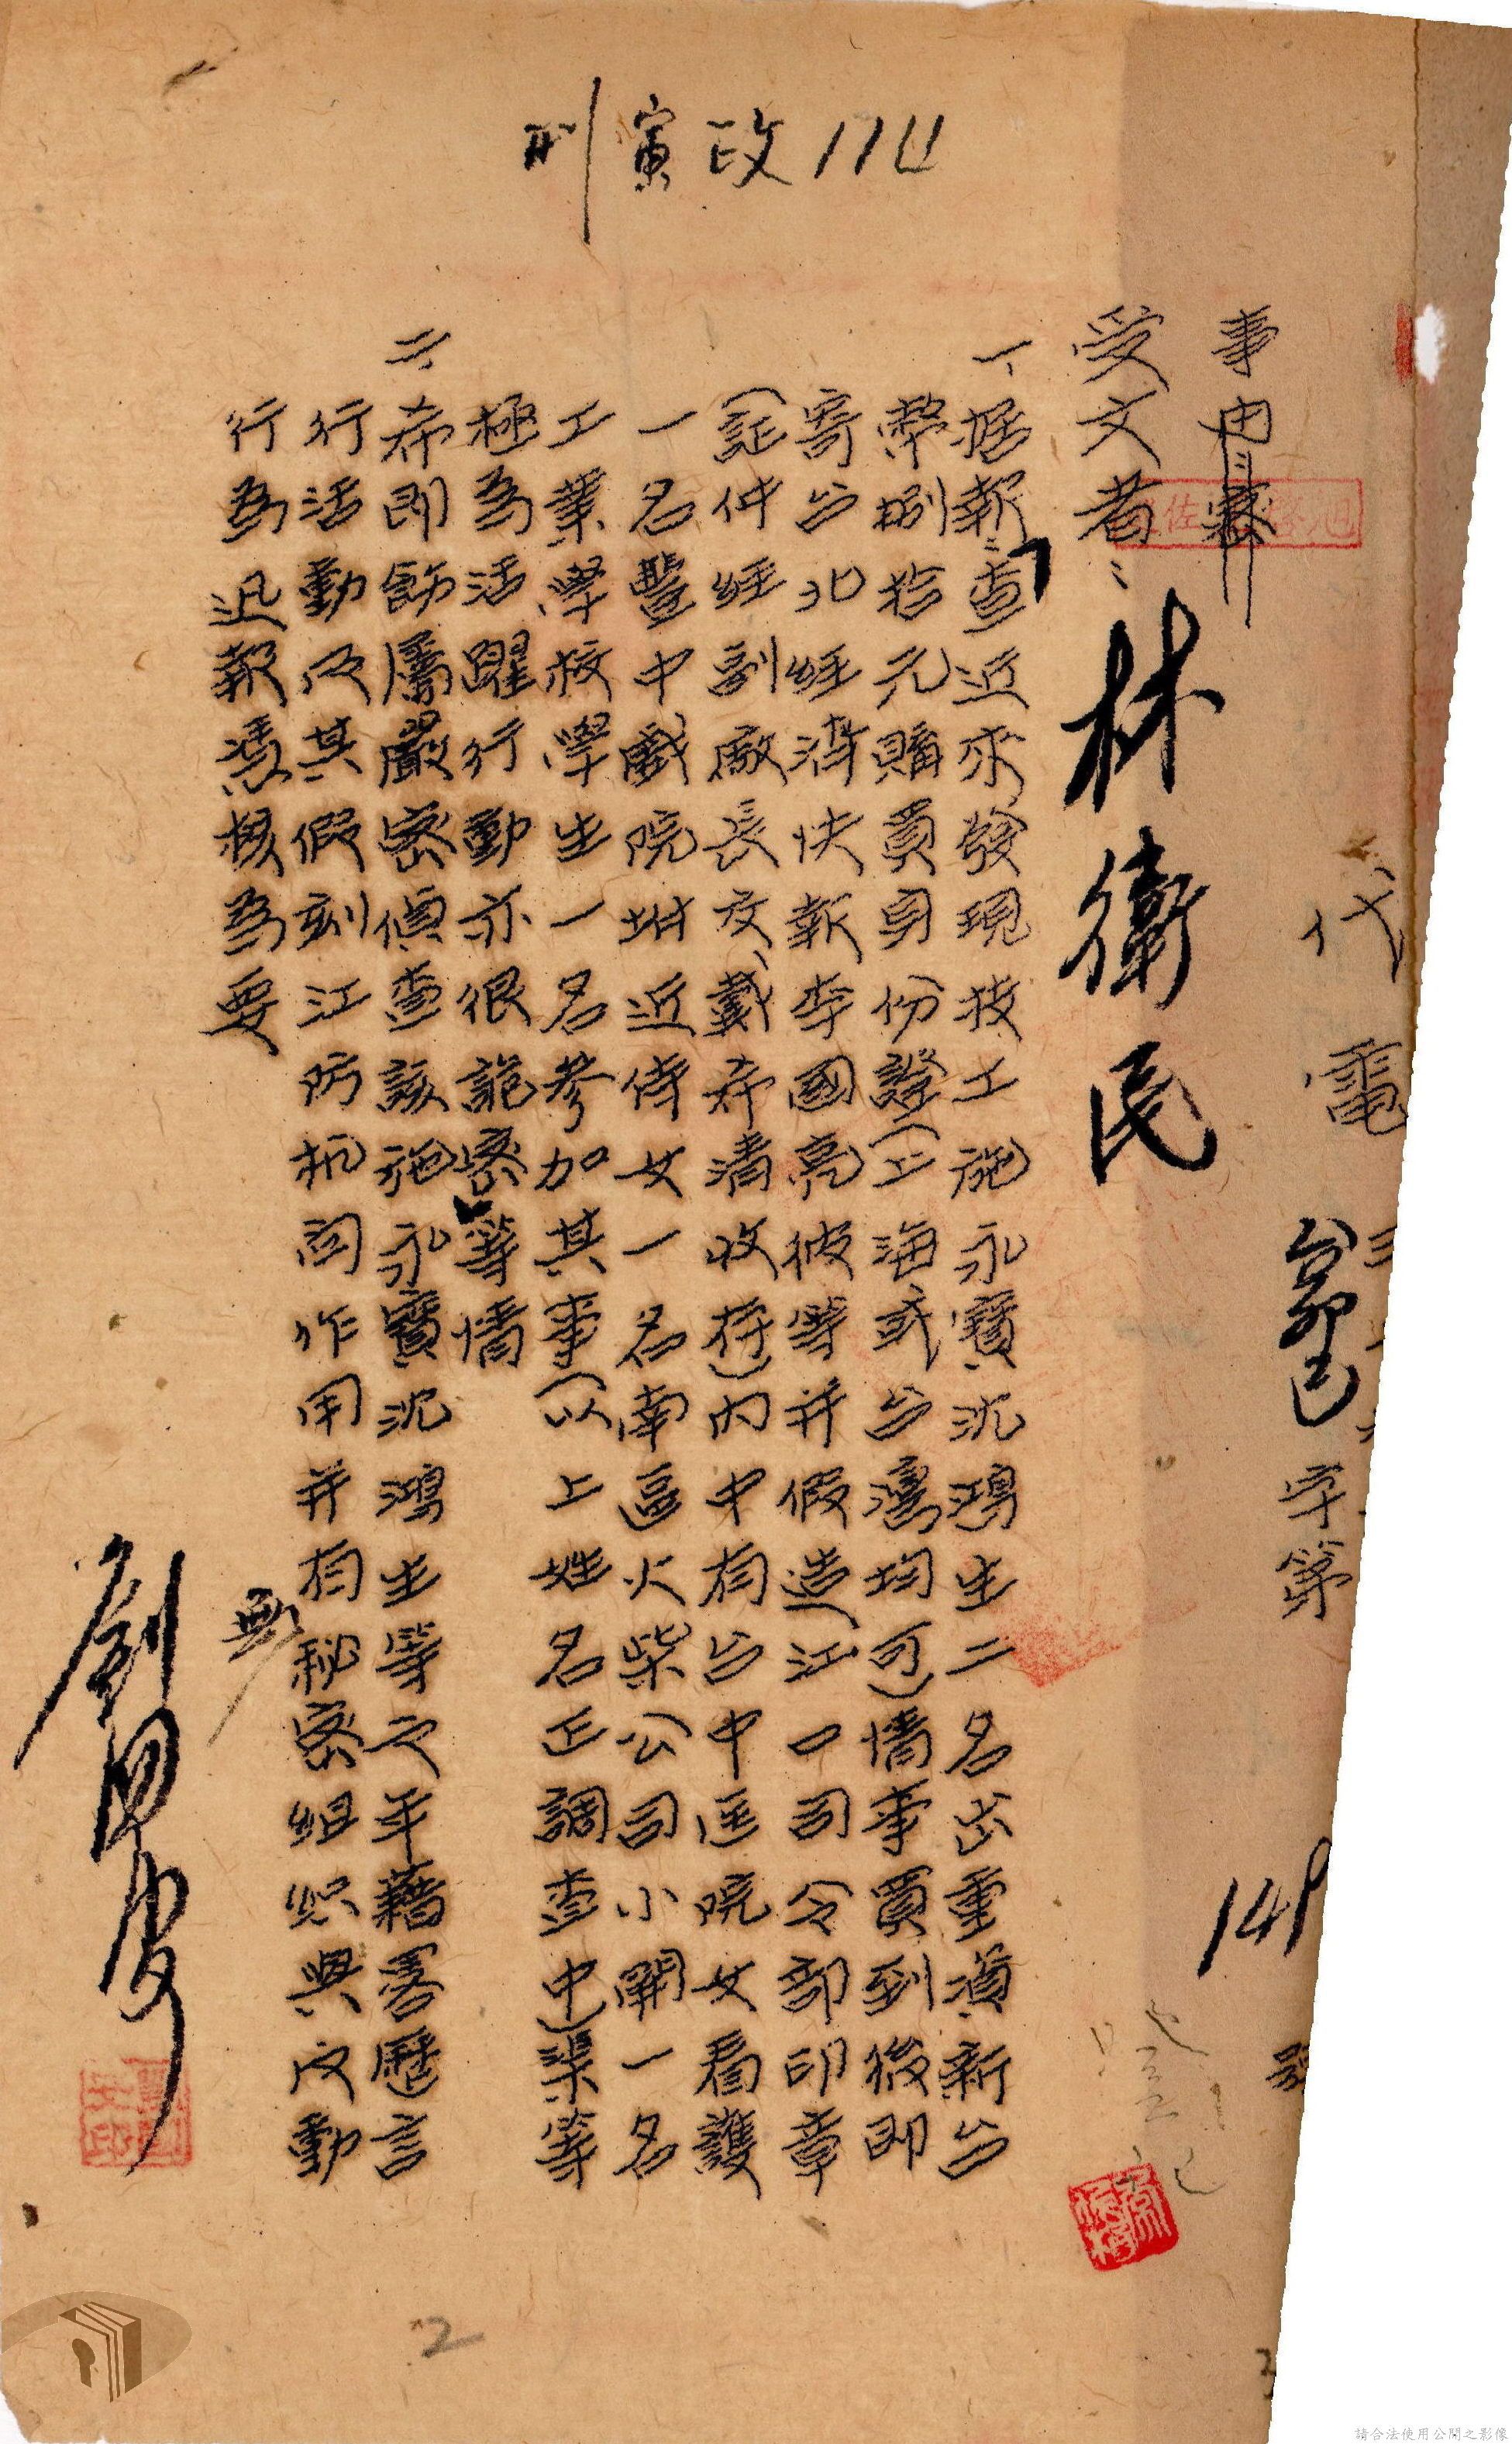 刑寅政11
代電
字第149號
事由
受文者：林衛民
一、據報：「查近來發現技工施永寶沈鴻生二名出重資新台
幣捌拾元購買身份證（上海或台灣均可）情事買到後即
寄台北經濟快報李國亮彼等并假造江口司令部印章
（証件經副廠長友、戴希清收存）內中有台中医院女看護
一名豐中戲院場近侍女一名南區火柴公司小開一名
工業學校學生一名參加其事（以上姓名正調查中）渠等
極為活躍行動亦很詭密」等情
二、希即飭屬嚴密偵查該施永寶沈鴻生等之年籍畧歷言
行活動及其假刻江防机関作用并有秘密組織與反動
行為迅報憑核為要
2
請合法使用公開之影像